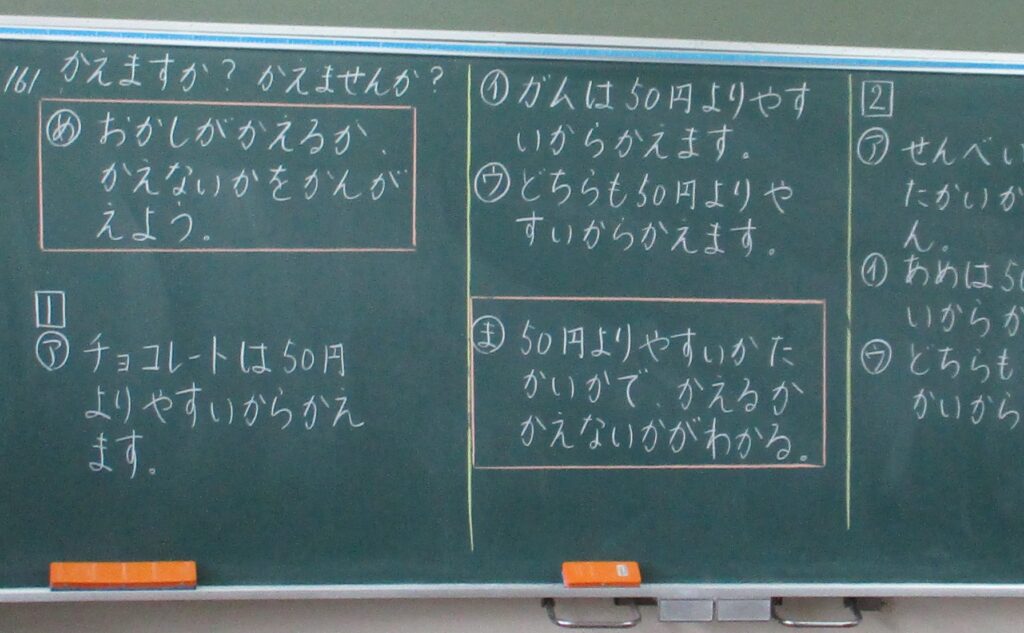 161 かえますか? かえませんか?
め おかしがかえるか、
かえないかをかんが
えよう。
1
ア チョコレートは50円
よりやすいからかえ
ます。
イ ガムは50円よりやす
いからかえます。
ウ どちらも50円よりや
すいからかえます。
ま 50円よりやすいかた
かいかで、かえるか
かえないかがわかる。
2
ア せんべい
たかいか
ん。
イ あめは50
いからか
ウ どちらも
かいから